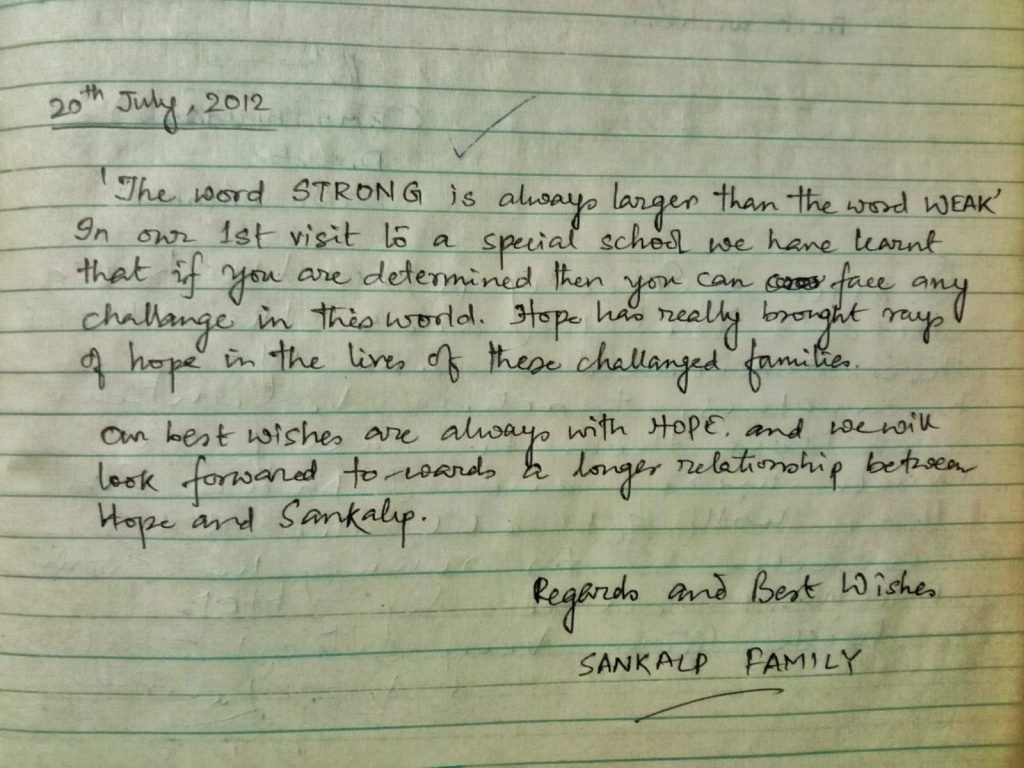 20th July, 2012
'The word STRONG is always larger than the word WEAK'
In our 1st visit to a special school we have learnt
that if you are determined then you can face any
challange in this world. Hope has really brought rays
of hope in the lives of these challanged families.
Our best wishes are always with HOPE. and we will
look forward to-wards a longer relationship between
Hope and Sankalp.
Regards and Best Wishes
SANKALP FAMILY